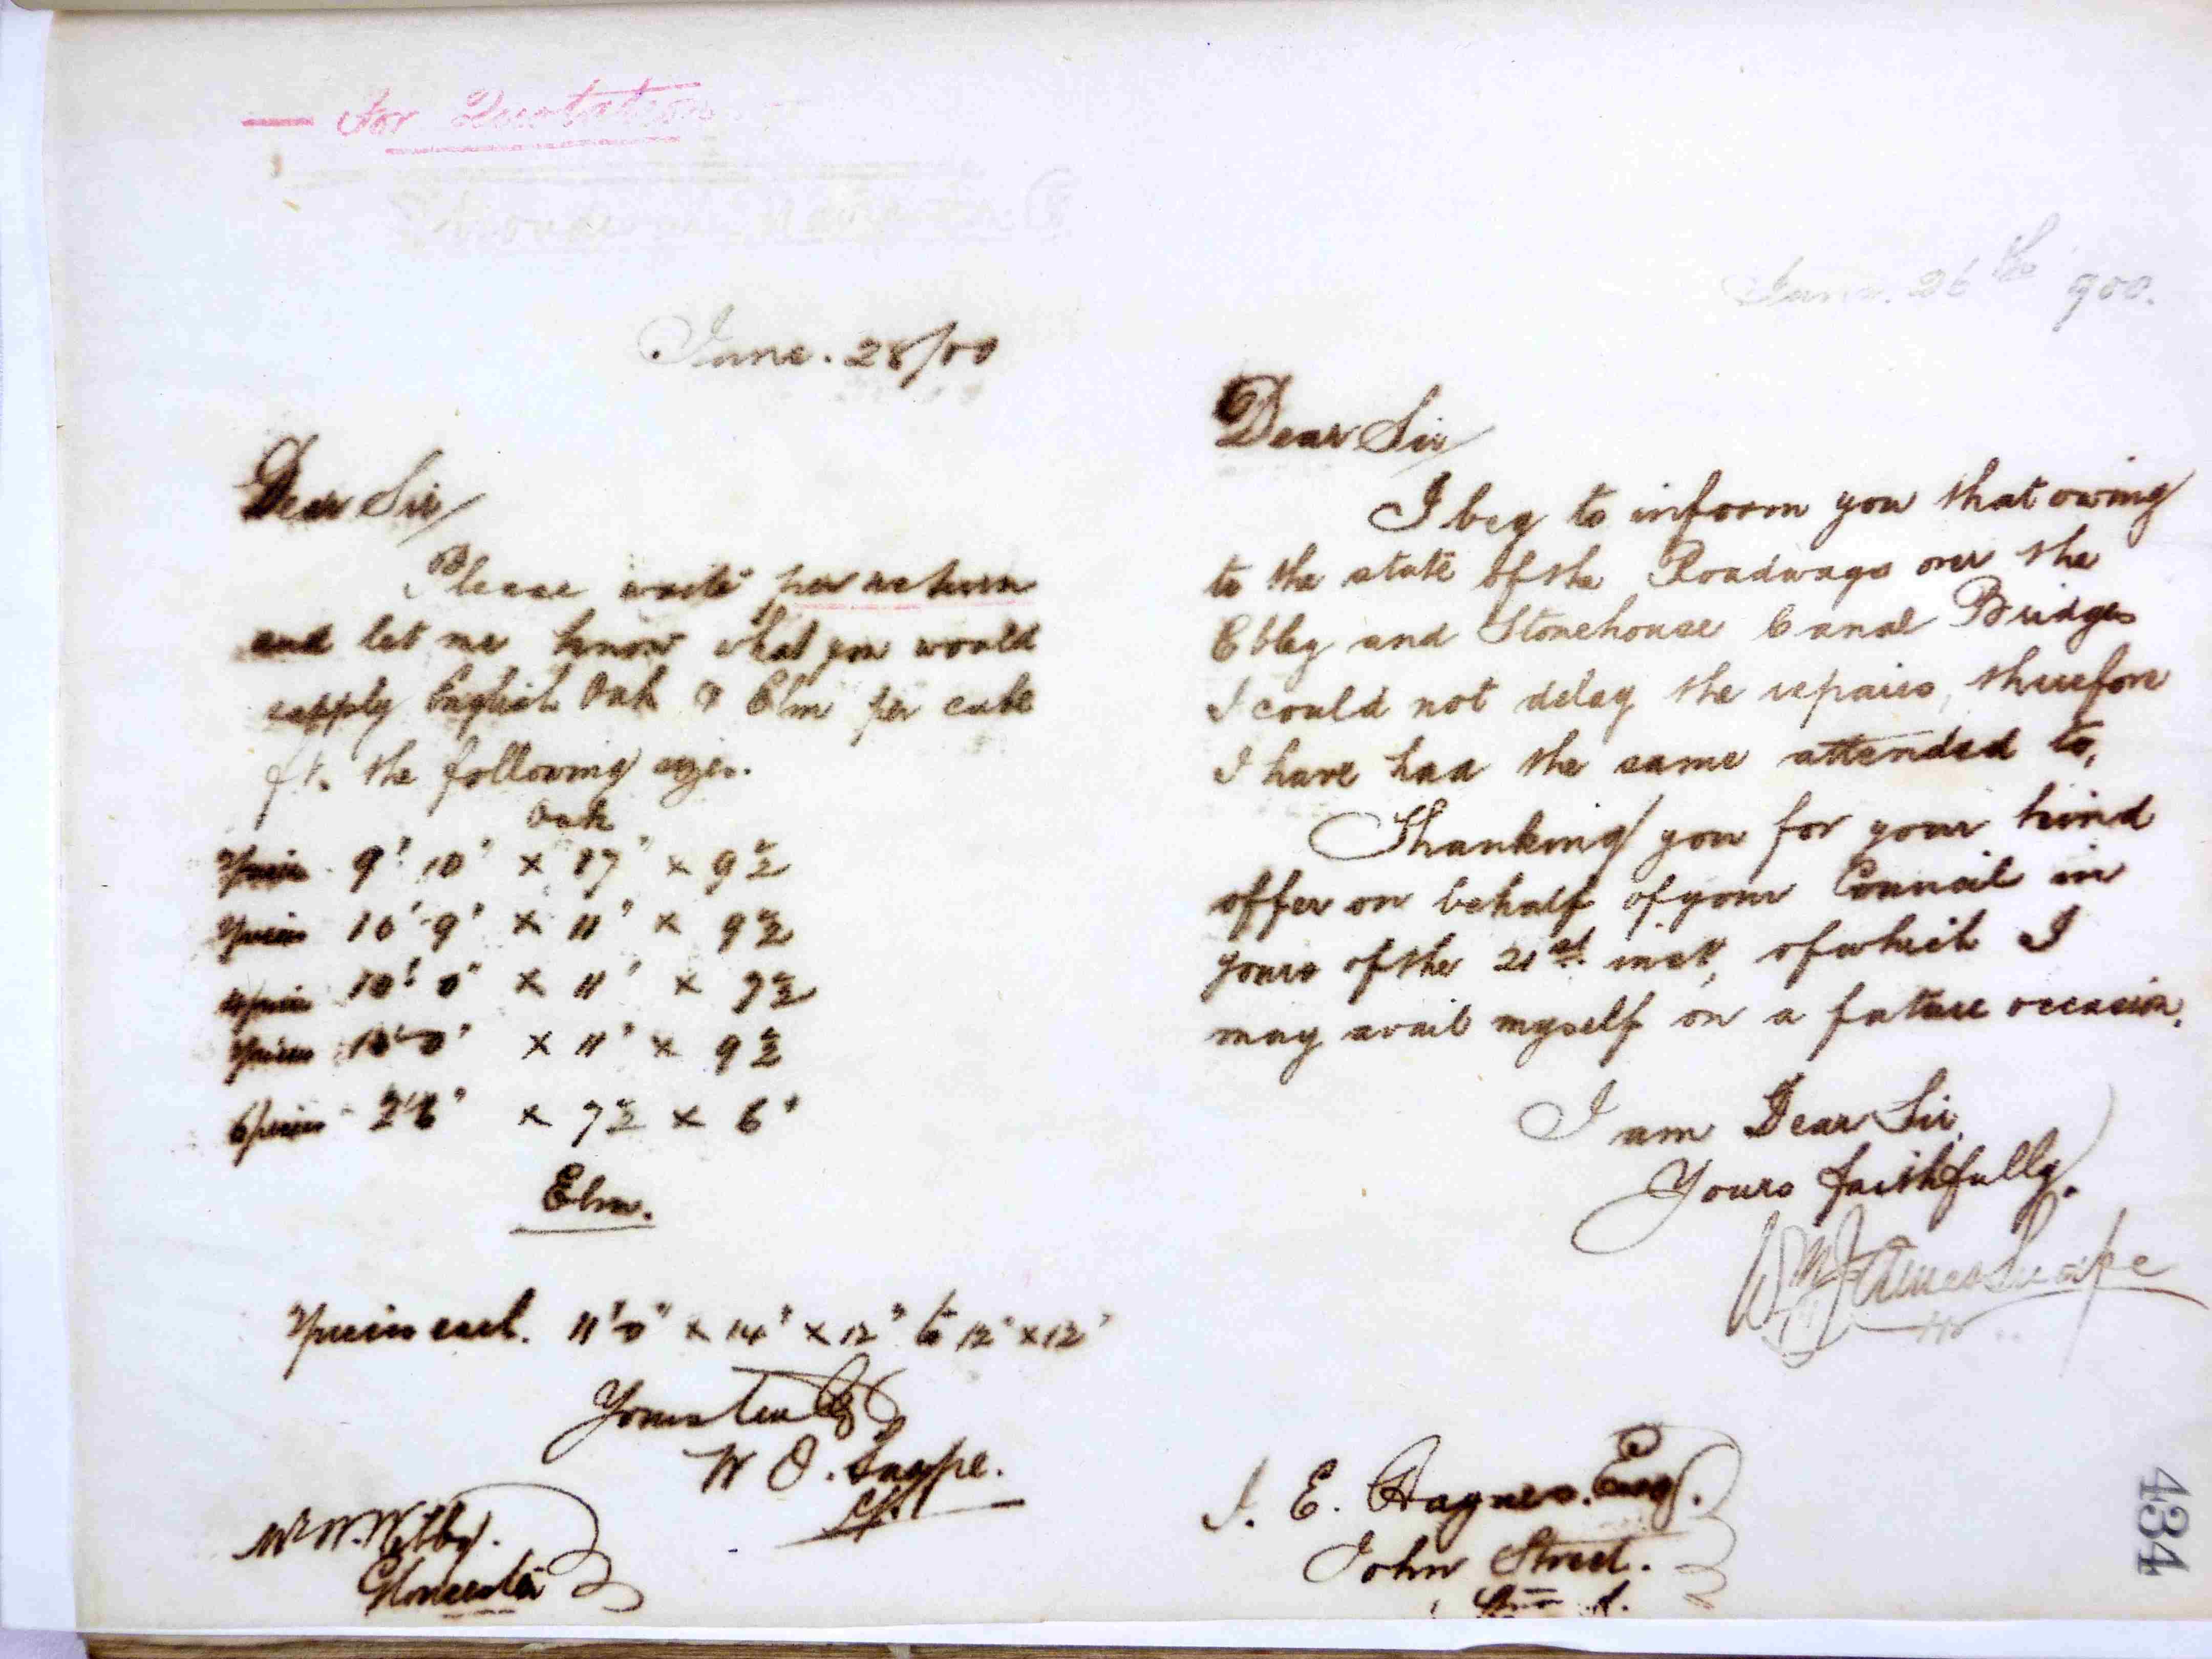 — For Quotation
June. 28/00
Dear Sir/
Please write per return
and let me know what you would
supply English Oak & Elm per cube
ft. the following sizes.
Oak
9' 10" × 17" × 9½
10' 9" × 11" × 9½
10' 0" × 11" × 9½
× 11" × 9½
6 pieces 2'6" × 7½ × 6"
Elm.
pieces each. 11'0" × 14" × 12" to 12" × 12"
Yours truly
W J. Snape.
Mr W.
Gloucester
June. 26th 900.
Dear Sir/
I beg to inform you that owing
to the state of the Roadways over the
Ebley and Stonehouse Canal Bridges
I could not delay the repairs, therefore
I have had the same attended to,
Thanking you for your kind
offer on behalf of your Council in
yours of the 21st. inst, of which I
may avail myself on a future occasion.
I am Dear Sir
Yours faithfully.
Wm James Snape
E. Haynes. Esq.
John Street.
434